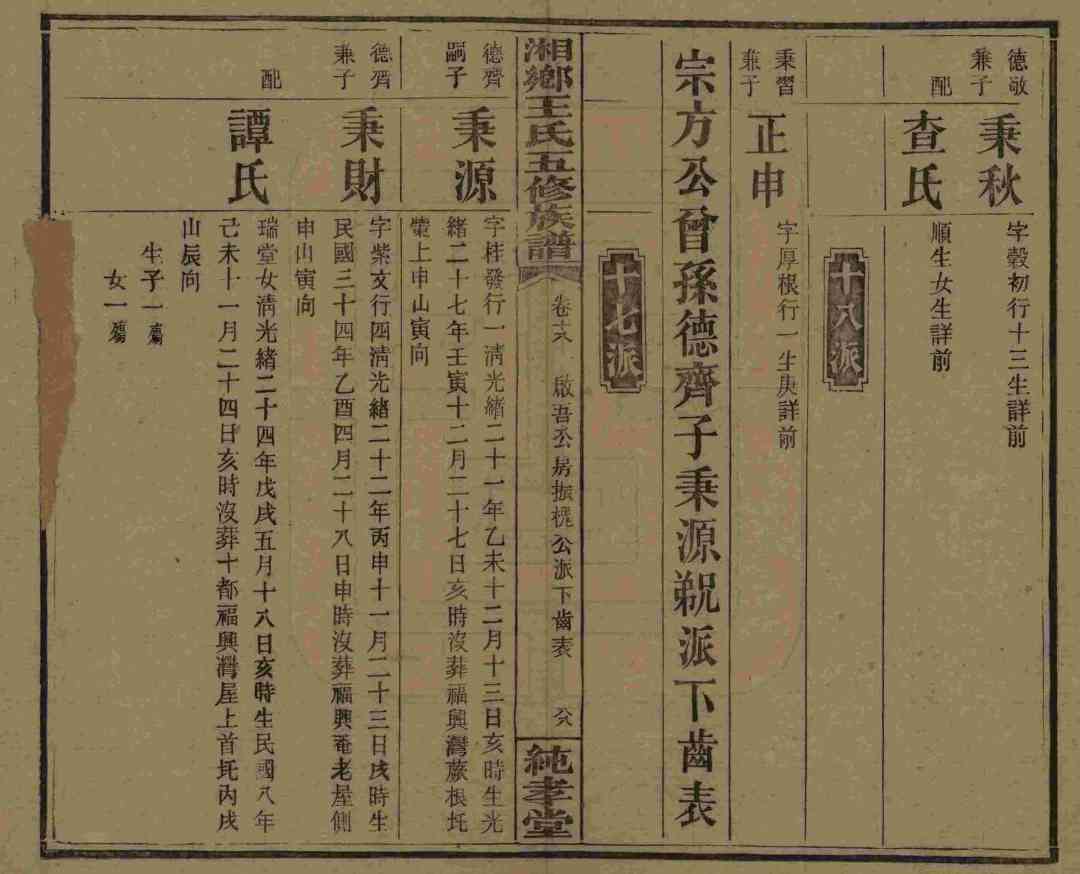 德敬
兼子
秉秋
字毅初行十三生詳前
配
查氏
順生女生詳前
十八派
秉習
兼子
正申
字厚根行一生庚詳前
宗方公曾孫德齊子秉源祝派下齒表
十七派
湘鄉王氏五修族譜
卷十八
啟吾公房振槐公派下齒表
六八
純孝堂
德齊
嗣子
秉源
字桂發行一清光緒二十一年乙未十二月十三日亥時生光
緒二十七年壬寅十二月二十七日亥時沒葬福興灣蕨根圫
壟上申山寅向
德齊
兼子
秉財
字紫文行四清光緒二十二年丙申十一月二十三日戌時生
民國三十四年乙酉四月二十八日申時沒葬福興菴老屋側
申山寅向
配
譚氏
瑞堂女清光緒二十四年戊戌五月十八日亥時生民國八年
己未十一月二十四日亥時沒葬十都福興灣屋上首圫丙戌
山辰向
生子一殤
女一殤